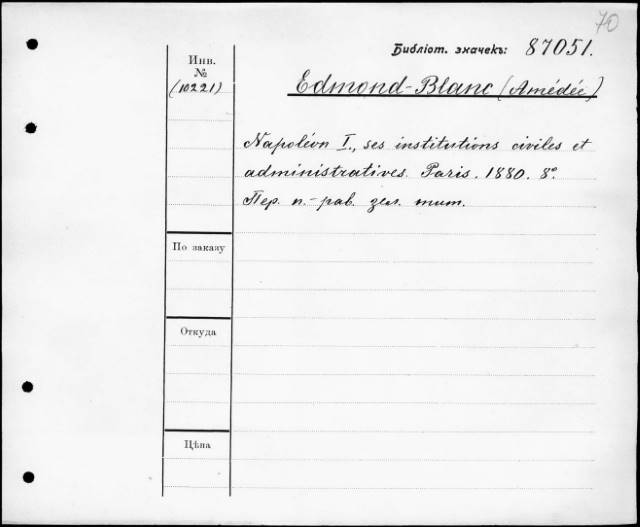 70
Библіот. значекъ: 87051.
Инв.
№
(10221)
Edmond-Blanc (Amédée)
Napoléon I., ses institutions civiles et
administratives. Paris. 1880. 8°.
Пер. п.-рав. зел. тит.
По заказу
Откуда
Цѣна